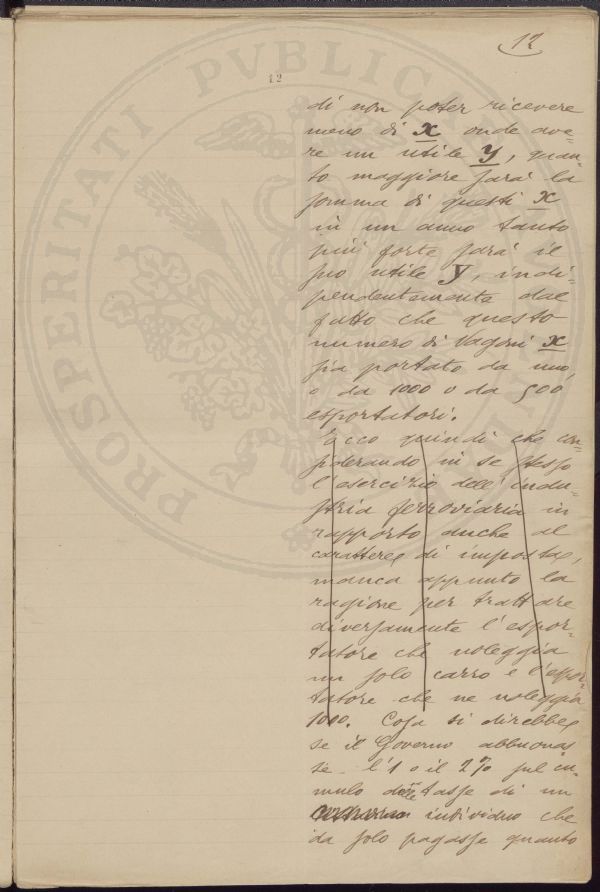 12
12
PROSPERITATI PVBLICAE
di non poter ricevere
meno di x onde ave-
re un utile y, quan-
to maggiore sarà la
somma di questi x
in un anno tanto
più forte sarà il
suo utile y, indi=
pendentemente dal
fatto che questo
numero di Vagoni x
sia portato da uno,
o da 1000 o da 500
esportatori.
Ecco quindi che con-
siderando in se stesso
l'esercizio dell'indu-
stria ferroviaria in
rapporto anche al
carattere di imposta,
manca appunto la
ragione per trattare
diversamente l'espor-
tatore che noleggia
un solo carro e l'espor-
tatore che ne noleggia
1000. Cosa si direbbe
se il Governo abbuonas
se l'1 o il 2% sul cu-
mulo delle tasse di un
individuo che
da solo pagasse quanto